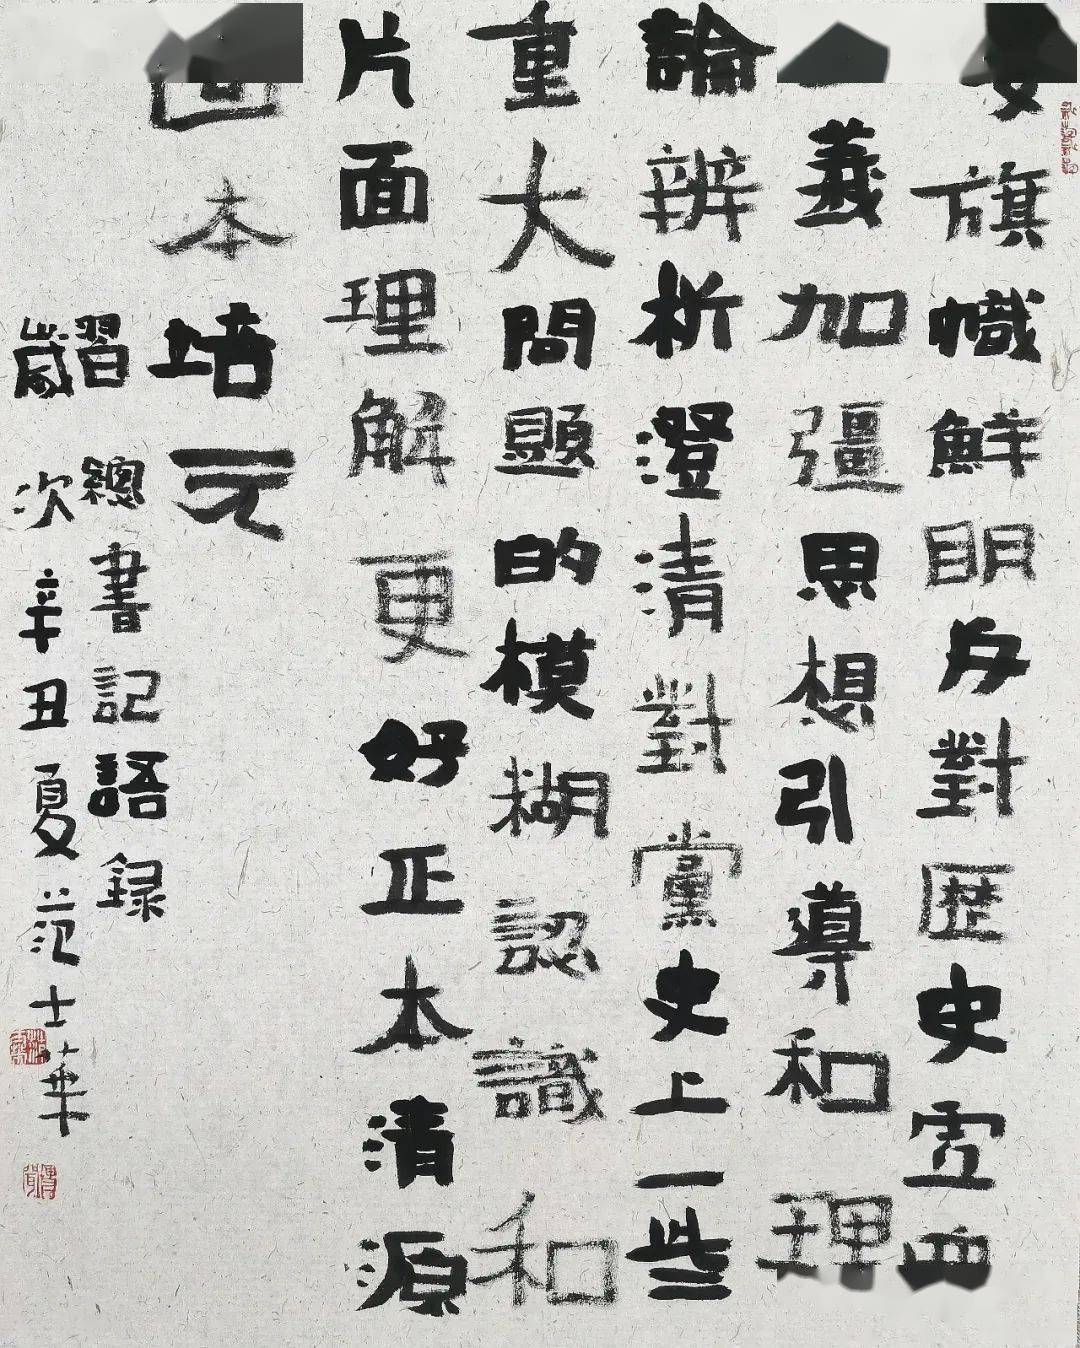 要旗幟鮮明反對歷史虛
義加彊思想引導和理
論辨析澄清對黨史上一些
重大問題的模糊認識和
片面理解更好正本清源
固本培元
習總書記語録
歲次辛丑夏范士華